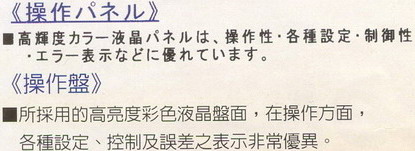 《操作パネル》
■高輝度カラー液晶パネルは、操作性・各種設定・制御性
・エラー表示などに優れています。
《操作盤》
■所採用的高亮度彩色液晶盤面，在操作方面，
各種設定、控制及誤差之表示非常優異。